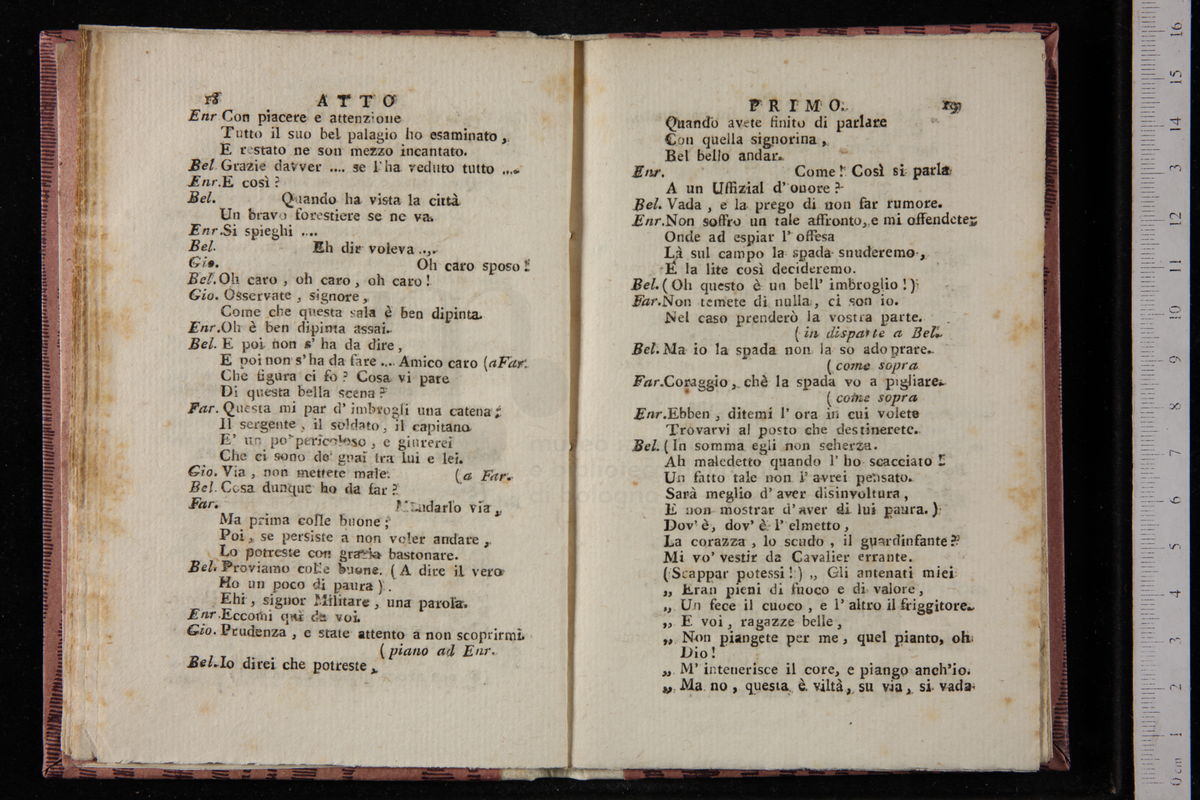 18 ATTO
Enr Con piacere e attenzione
Tutto il suo bel palagio ho esaminato,
E restato ne son mezzo incantato.
Bel. Grazie davver .... se l'ha veduto tutto ....
Enr. E così?
Bel. Quando ha vista la città
Un bravo forestiere se ne va.
Enr. Si spieghi ....
Bel. Eh dir voleva ....
Gio. Oh caro sposo!
Bel. Oh caro, oh caro, oh caro!
Gio. Osservate, signore,
Come che questa sala è ben dipinta.
Enr. Oh è ben dipinta assai.
Bel. E poi non s' ha da dire,
E poi non s' ha da fare .... Amico caro (a Far.
Che figura ci fo? Cosa vi pare
Di questa bella scena?
Far. Questa mi par d' imbrogli una catena:
Il sergente, il soldato, il capitano
E' un po' pericoloso, e giurerei
Che ci sono de' guai tra lui e lei.
Gio. Via, non mettete male. (a Far.
Bel. Cosa dunque ho da far?
Far. Mandarlo via,
Ma prima colle buone;
Poi, se persiste a non voler andare,
Lo potreste con grazia bastonare.
Bel. Proviamo colle buone. (A dire il vero
Ho un poco di paura).
Ehi, signor Militare, una parola.
Enr. Eccomi qui da voi.
Gio. Prudenza, e state attento a non scoprirmi.
(piano ad Enr.
Bel. Io direi che potreste,
PRIMO. 19
Quando avete finito di parlare
Con quella signorina,
Bel bello andar.
Enr. Come! Così si parla
A un Uffizial d' onore?
Bel. Vada, e la prego di non far rumore.
Enr. Non soffro un tale affronto, e mi offendete;
Onde ad espiar l' offesa
Là sul campo la spada snuderemo,
E la lite così decideremo.
Bel. (Oh questo è un bell' imbroglio!)
Far. Non temete di nulla, ci son io.
Nel caso prenderò la vostra parte.
(in disparte a Bel.
Bel. Ma io la spada non la so adoprare.
(come sopra
Far. Coraggio, chè la spada vo a pigliare.
(come sopra
Enr. Ebben, ditemi l' ora in cui volete
Trovarvi al posto che destinerete.
Bel. (In somma egli non scherza.
Ah maledetto quando l' ho scacciato!
Un fatto tale non l' avrei pensato.
Sarà meglio d' aver disinvoltura,
E non mostrar d' aver di lui paura.)
Dov' è, dov' è l' elmetto,
La corazza, lo scudo, il guardinfante?
Mi vo' vestir da Cavalier errante.
(Scappar potessi!) „ Gli antenati miei
„ Eran pieni di fuoco e di valore,
„ Un fece il cuoco, e l' altro il friggitore.
„ E voi, ragazze belle,
„ Non piangete per me, quel pianto, oh
Dio!
„ M' intenerisce il core, e piango anch'io.
„ Ma no, questa è viltà, su via, si vada